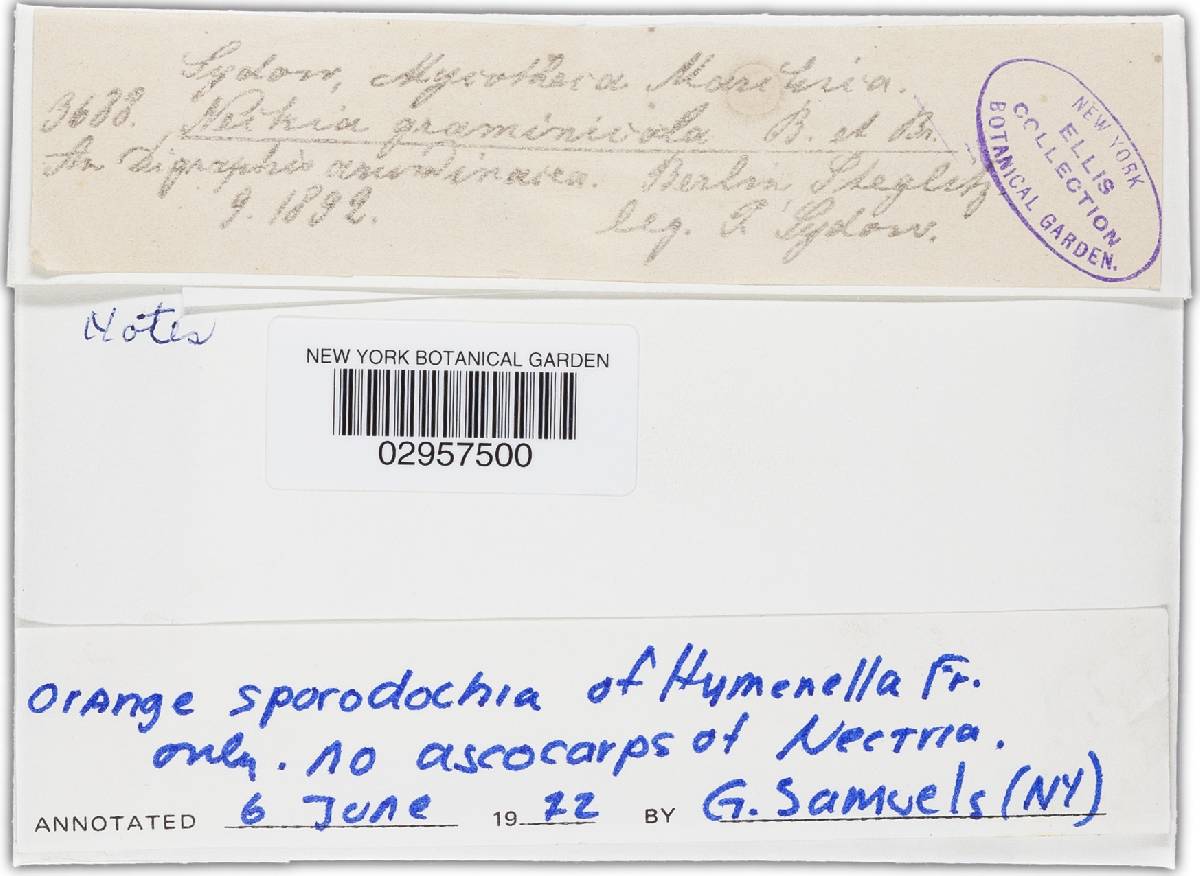 Sydow, Mycotheca Marchica.
3688. Nectria graminicola B. et Br.
An Digraphis arundinacea. Berlin, Steglitz,
9. 1892. leg. P. Sydow.
NEW YORK
ELLIS
COLLECTION
BOTANICAL GARDEN.
Notes
NEW YORK BOTANICAL GARDEN
02957500
Orange sporodochia of Hymenella Fr.
only. no ascocarps of Nectria.
ANNOTATED 6 June 1972 BY G. Samuels (NY)